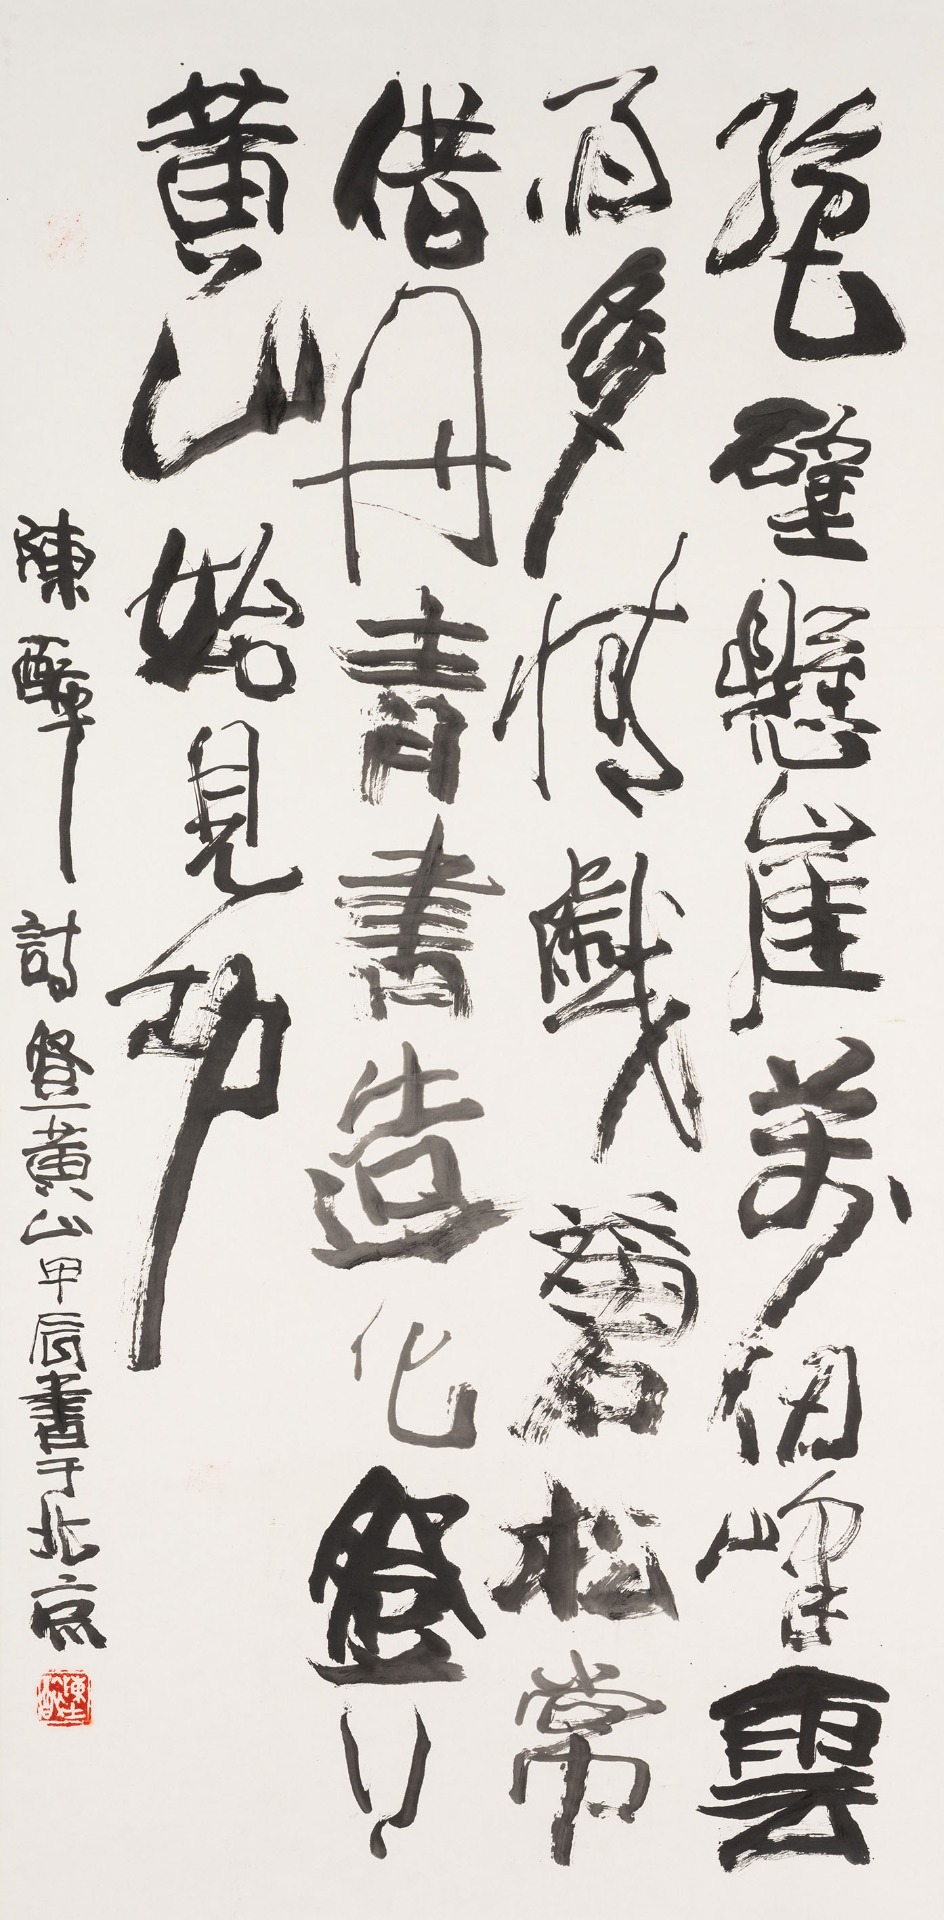 絕壁懸崖萬仞峰雲
百多情戲蒼松常
借丹青書造化登
黃山始見功
陳醉詩登黃山甲辰書于北京
陳醉